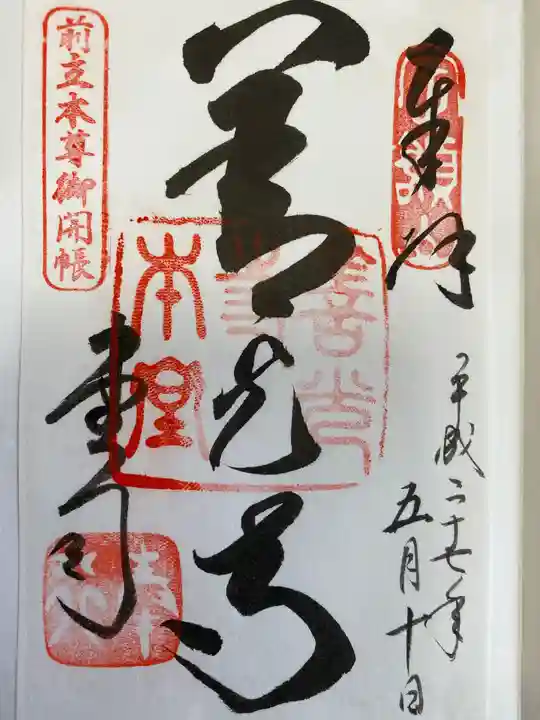 奉拝
平成二十七年
五月十日
善光寺
善光
本堂
前立本尊御開帳